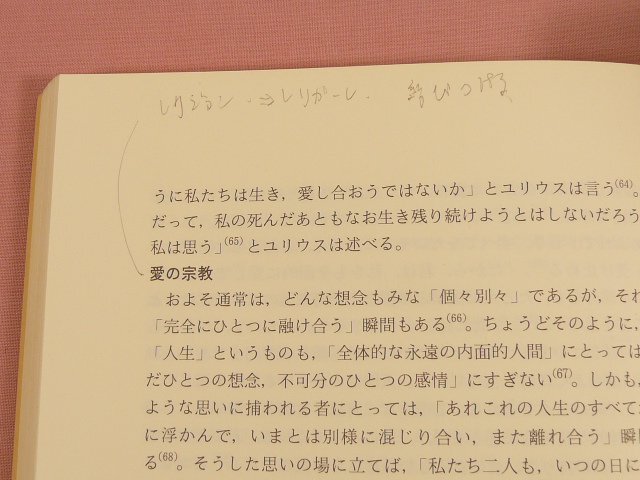 レリジョン ⇒ レリガーレ. 結びつける、
うに私たちは生き，愛し合おうではないか」とユリウスは言う(64)。
だって，私の死んだあともなお生き残り続けようとはしないだろう
私は思う」(65)とユリウスは述べる。
愛の宗教
およそ通常は，どんな想念もみな「個々別々」であるが，それ
「完全にひとつに融け合う」瞬間もある(66)。ちょうどそのように，
「人生」というものも，「全体的な永遠の内面的人間」にとっては
だひとつの想念，不可分のひとつの感情」にすぎない(67)。しかも，
ような思いに捕われる者にとっては，「あれこれの人生のすべてが
に浮かんで，いまとは別様に混じり合い，また離れ合う」瞬間
る(68)。そうした思いの場に立てば，「私たち二人も，いつの日に